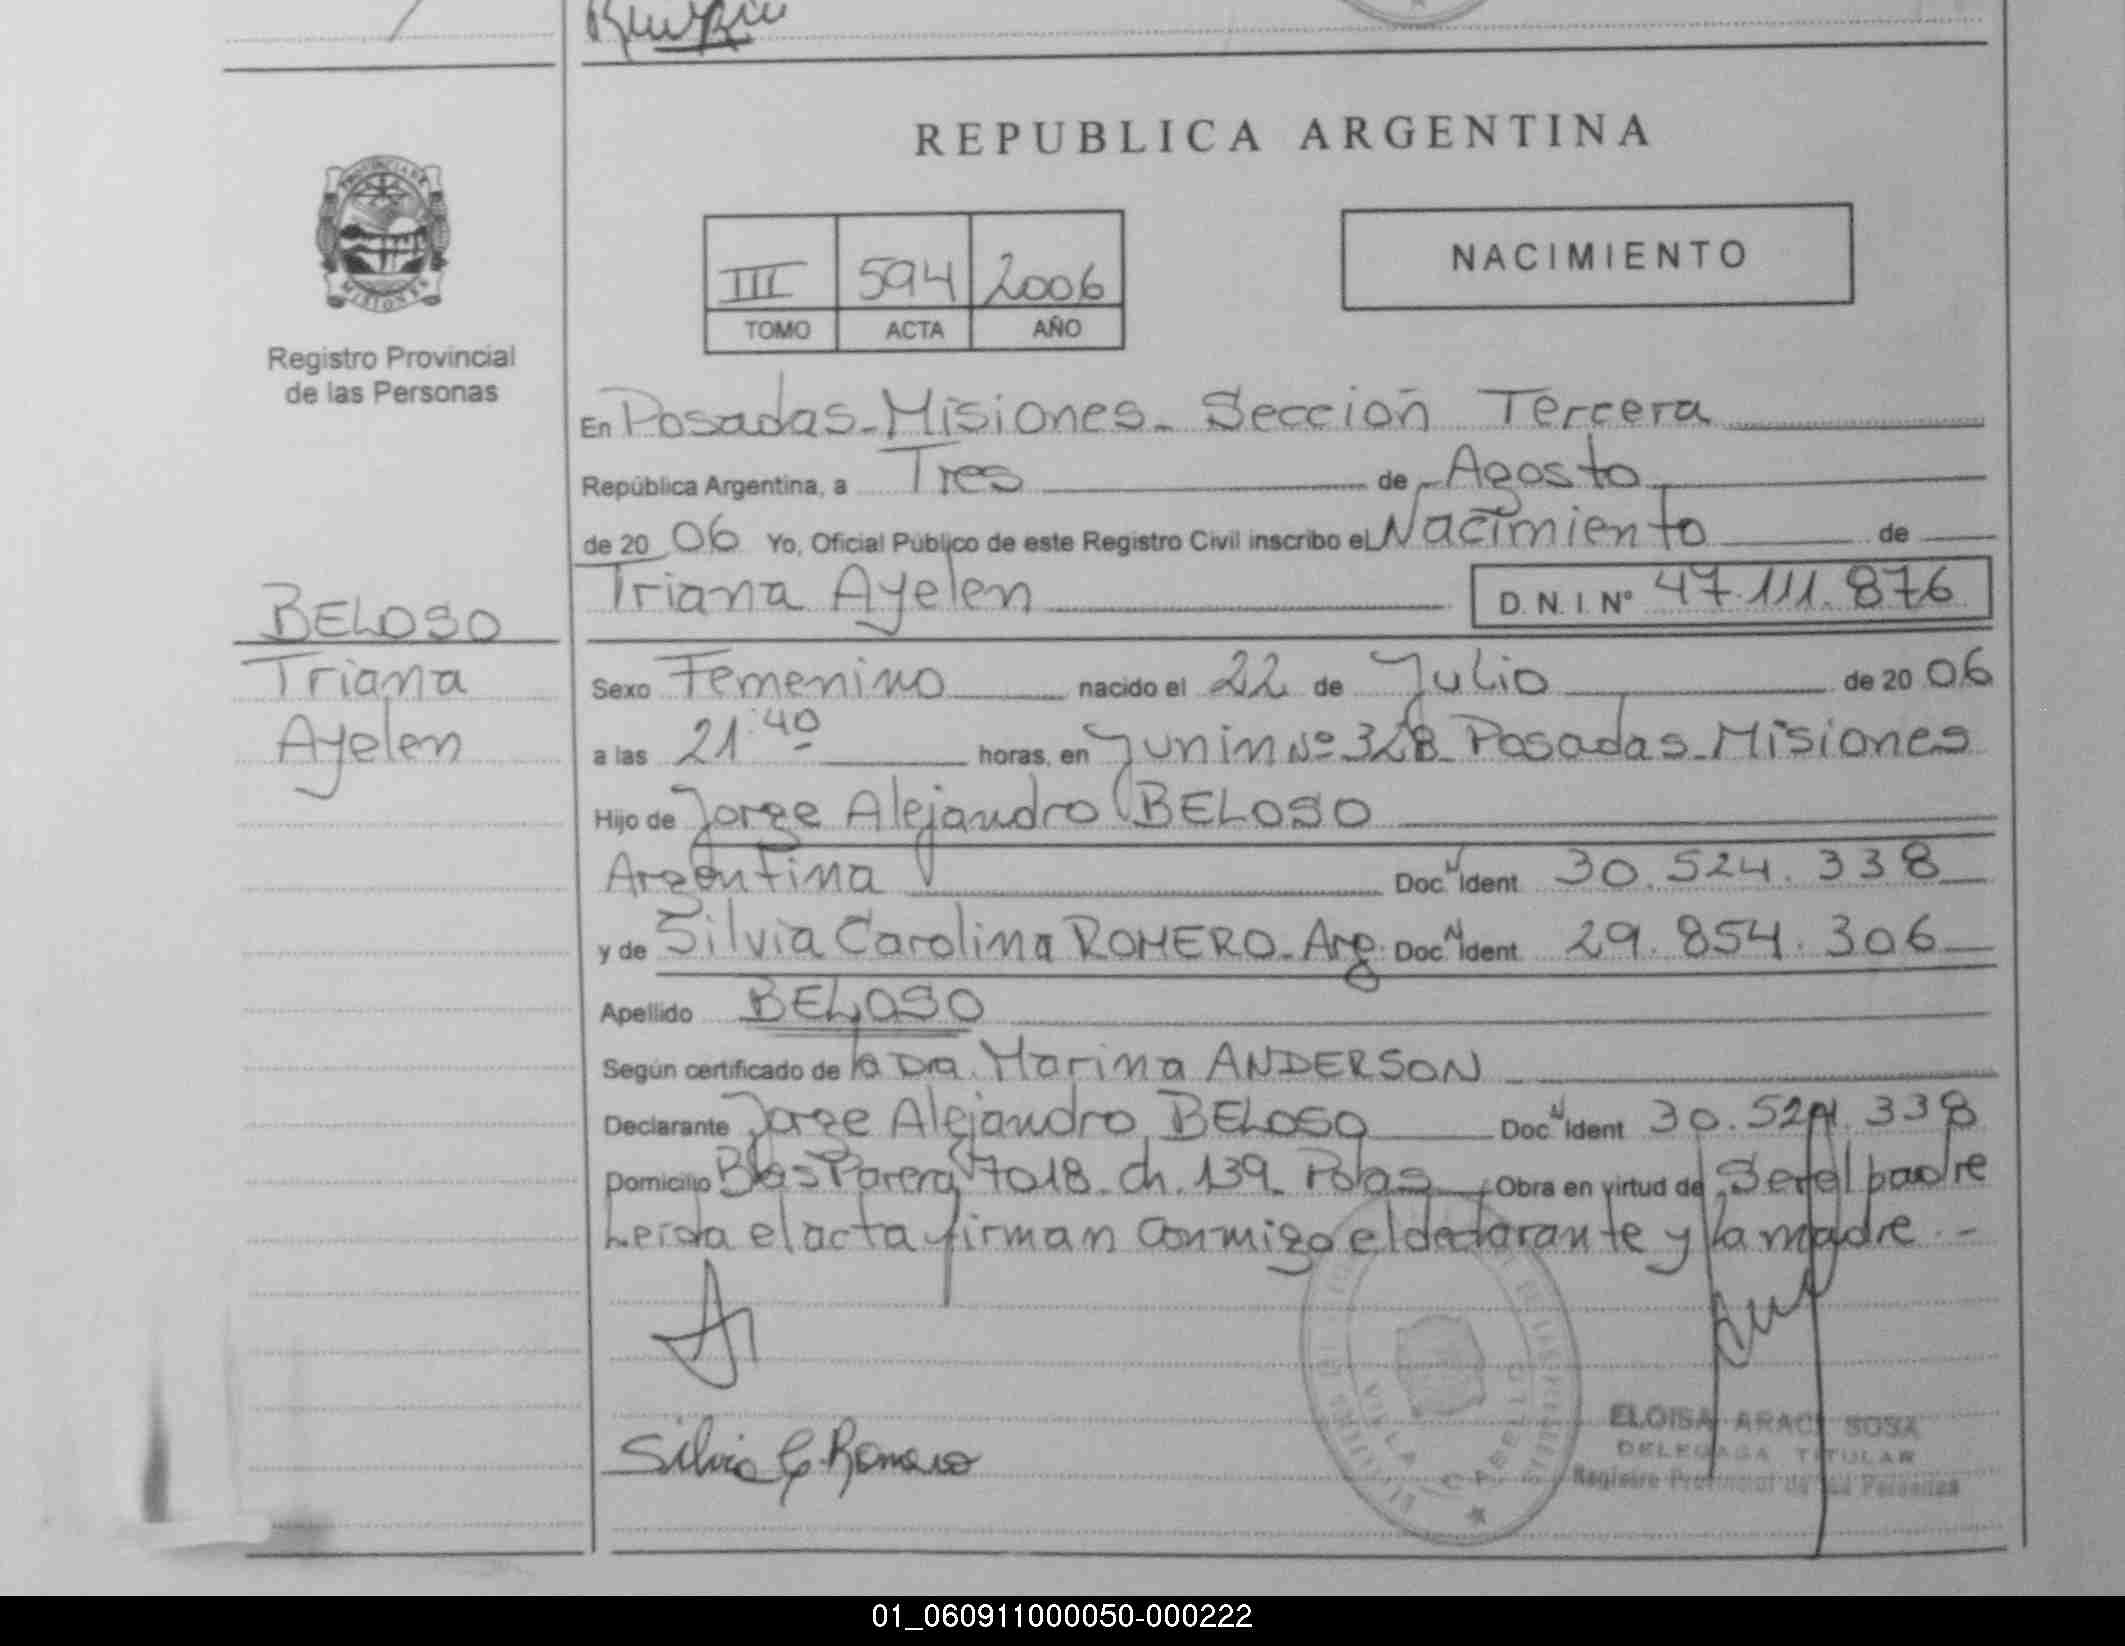 REPUBLICA ARGENTINA
PROVINCIA DE
MISIONES
Registro Provincial
de las Personas
III 594 2006
TOMO ACTA AÑO
NACIMIENTO
En Posadas-Misiones- Sección Tercera
República Argentina, a Tres de Agosto
de 20 06 Yo, Oficial Público de este Registro Civil inscribo el Nacimiento de
Triana Ayelen D.N.I. Nº 47.111.876
BELOSO
Triana
Ayelen
Sexo Femenino nacido el 22 de Julio de 20 06
a las 21:40 horas, en Junin Nº 328 Posadas-Misiones
Hijo de Jorge Alejandro BELOSO
Argentina Doc. Ident 30.524.338
y de Silvia Carolina ROMERO- Arg. Doc. Ident 29.854.306
Apellido BELOSO
Según certificado de la Dra. Marina ANDERSON
Declarante Jorge Alejandro BELOSO Doc. Ident 30.524.338
Domicilio Blas Parera 7018- ch. 139- Pdas Obra en virtud de Ser el padre
Leida el acta firman conmigo el declarante y la madre -
Silvia C. Romero
VILLA CABELLO
ELOISA ARACI SOSA
DELEGADA TITULAR
Registro Provincial de las Personas
01_060911000050-000222